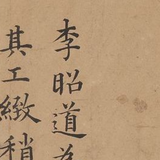 李昭道為
其工緻稍